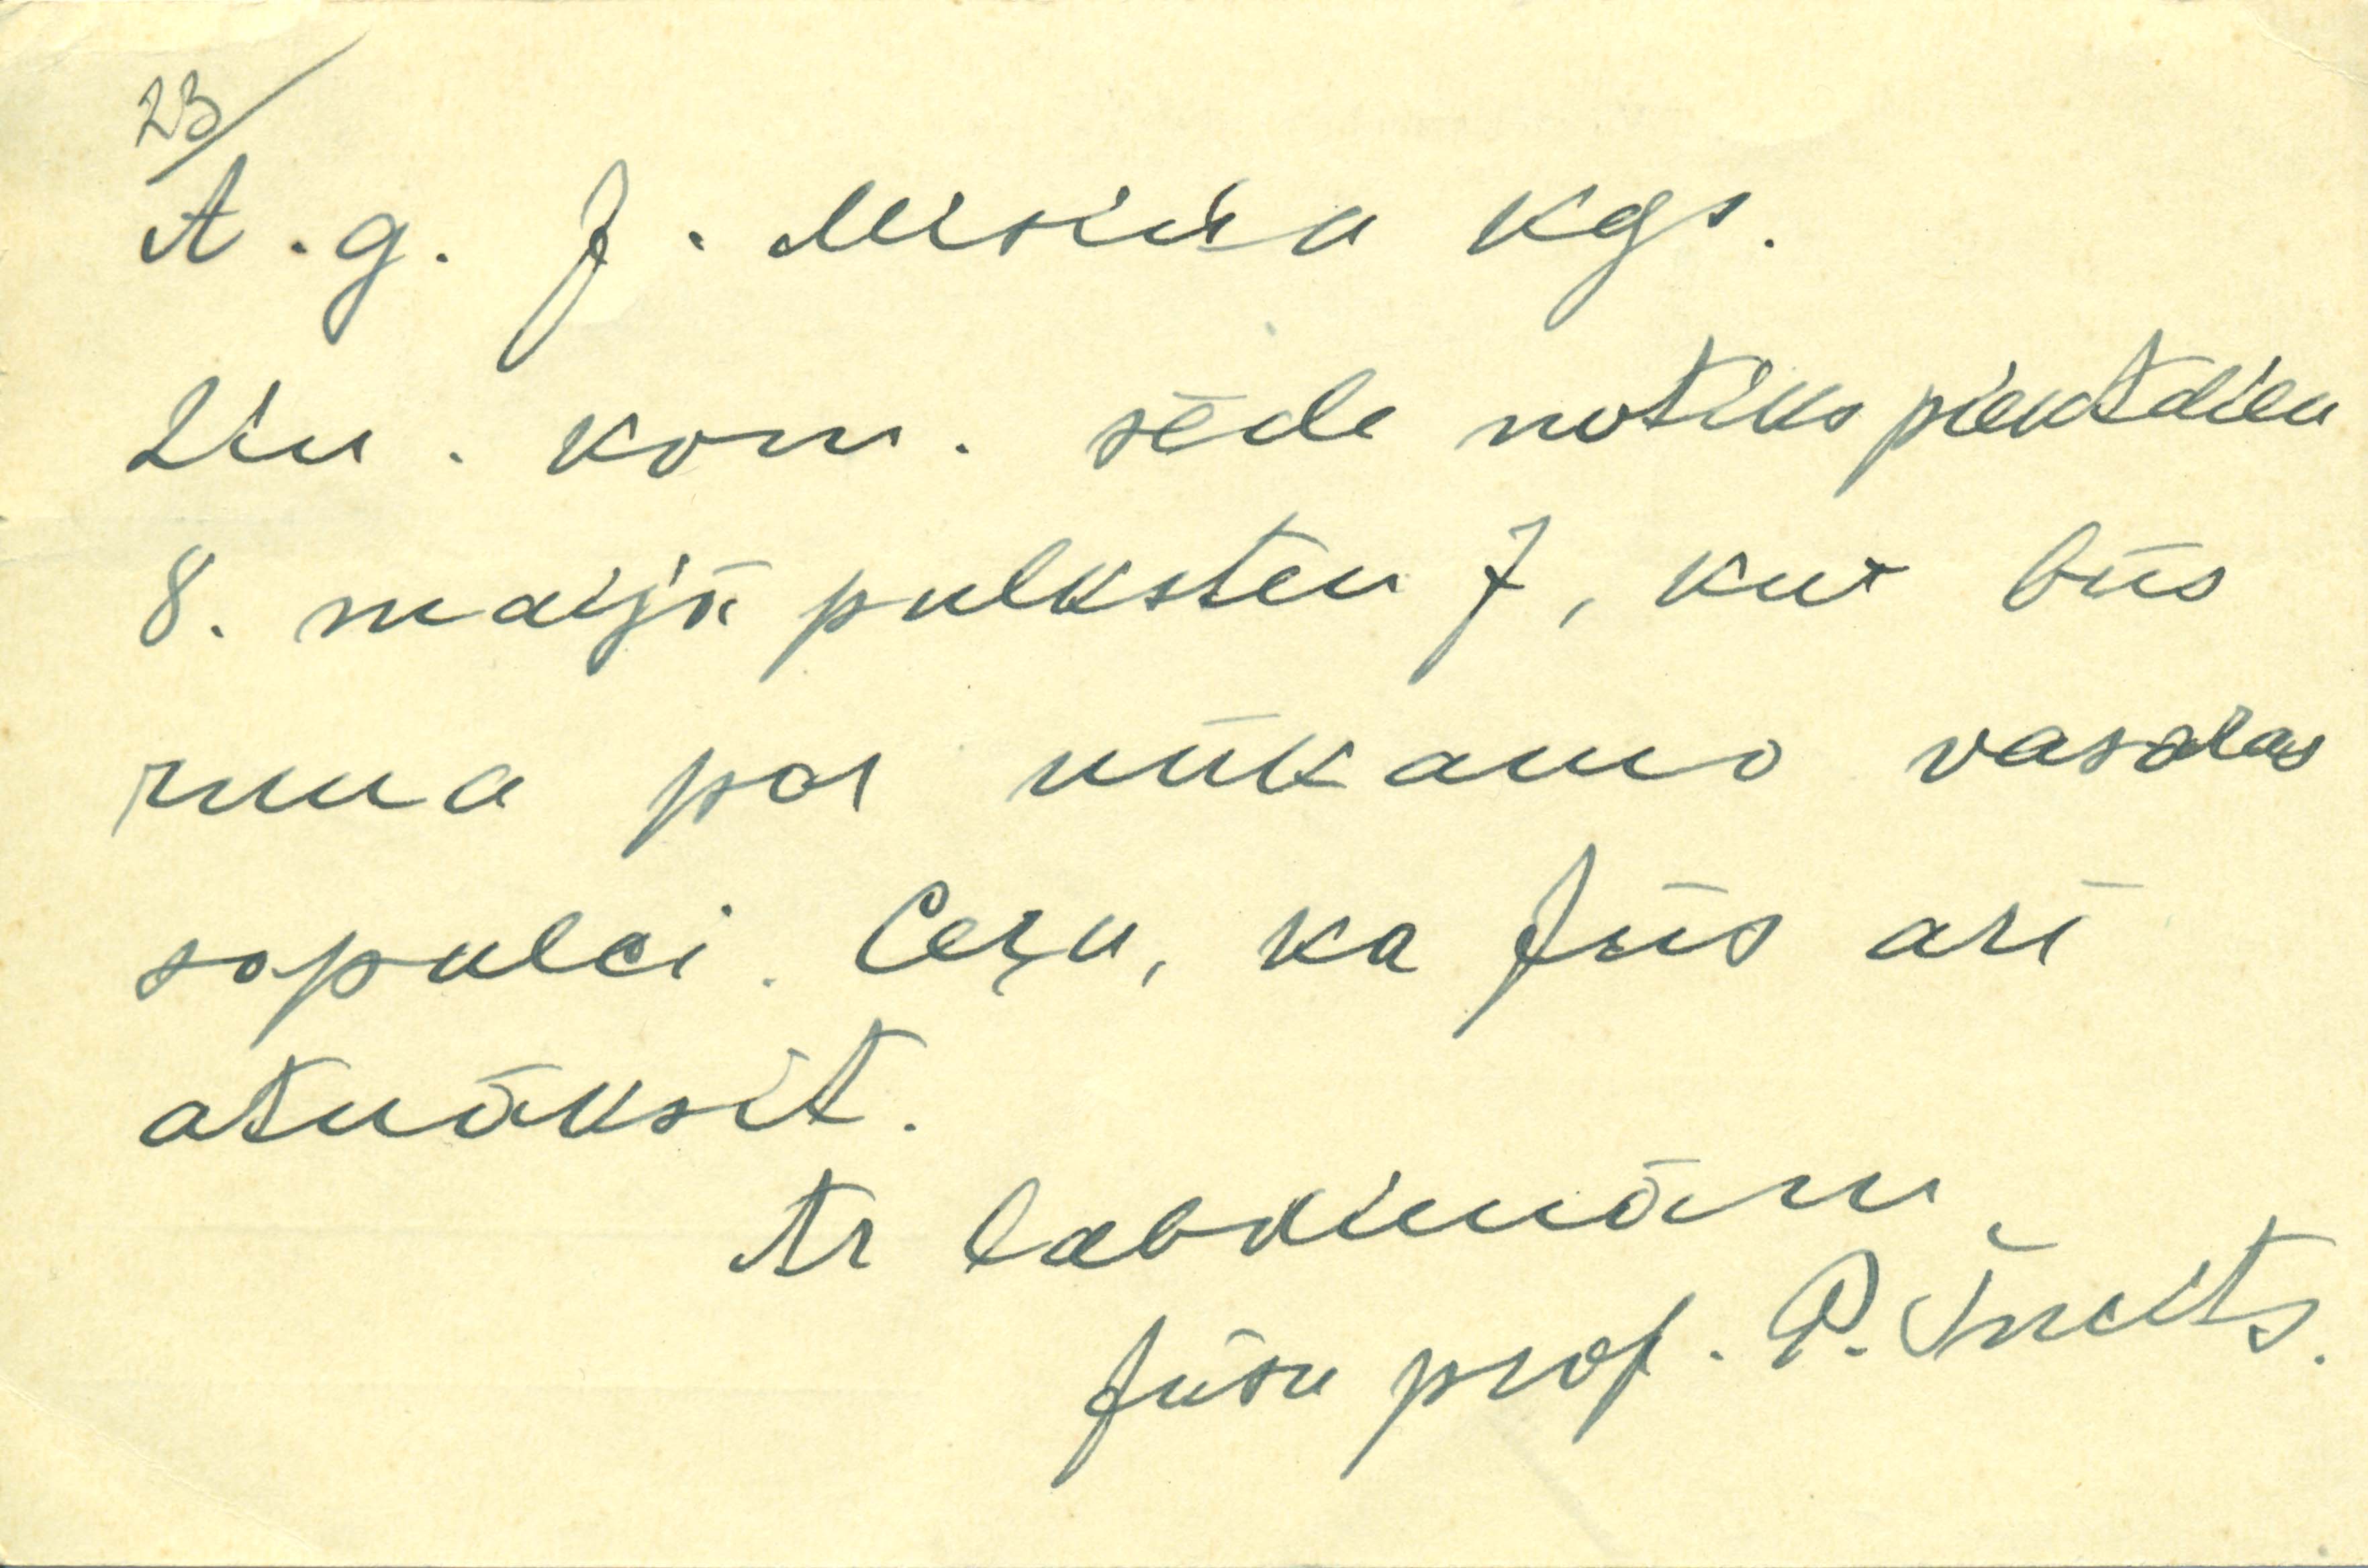 23/
A. g. J. Misiņa kgs.
Zin. kom. sēde notiks piektdien
8. maijā pulksten 7, kur būs
runa par nākamo vasaras
sapulci. Ceŗu, ka Jūs arī
atnāksit.
Ar labdienām
Jūsu prof. P. Šmits.